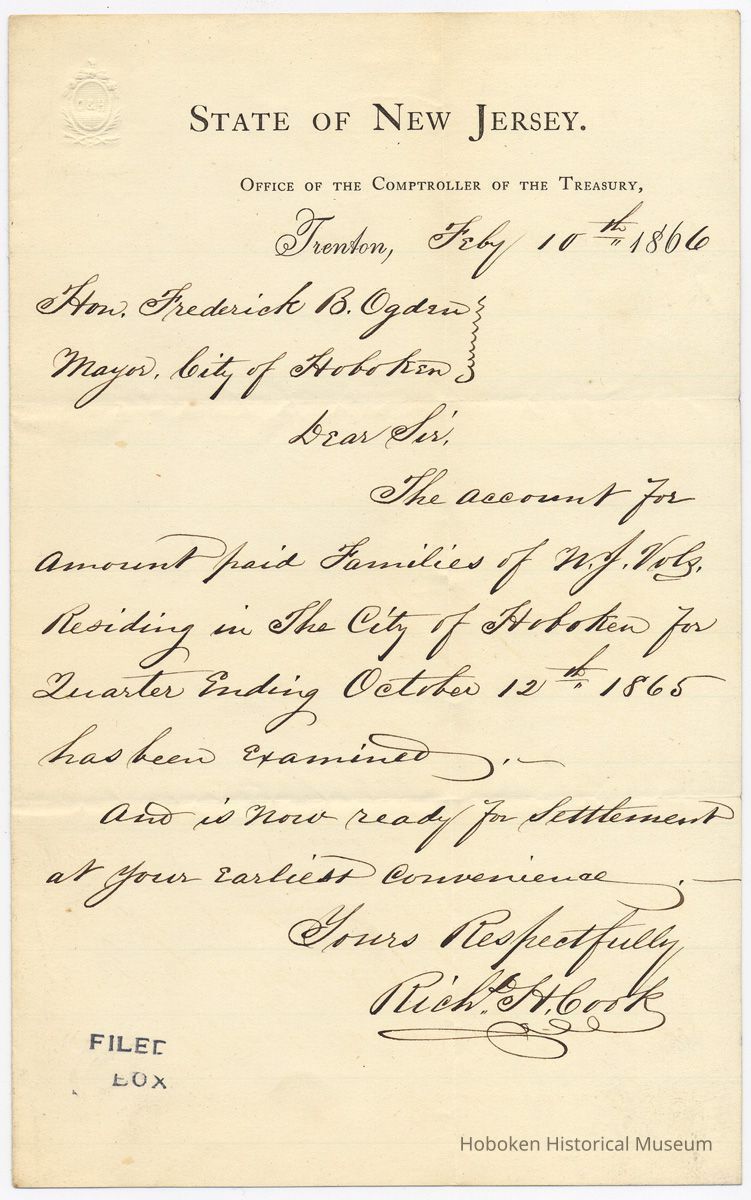 STATE OF NEW JERSEY.
OFFICE OF THE COMPTROLLER OF THE TREASURY,
Trenton, Feby 10th 1866
Hon. Frederick B. Ogden
Mayor, City of Hoboken
Dear Sir,
The account for
amount paid Families of N.J. Vols.
Residing in The City of Hoboken for
Quarter Ending October 12th 1865
has been Examined.—
And is now ready for Settlement
at your Earliest Convenience.—
Yours Respectfully
Richd. H. Cook
FILED
BOX
Hoboken Historical Museum